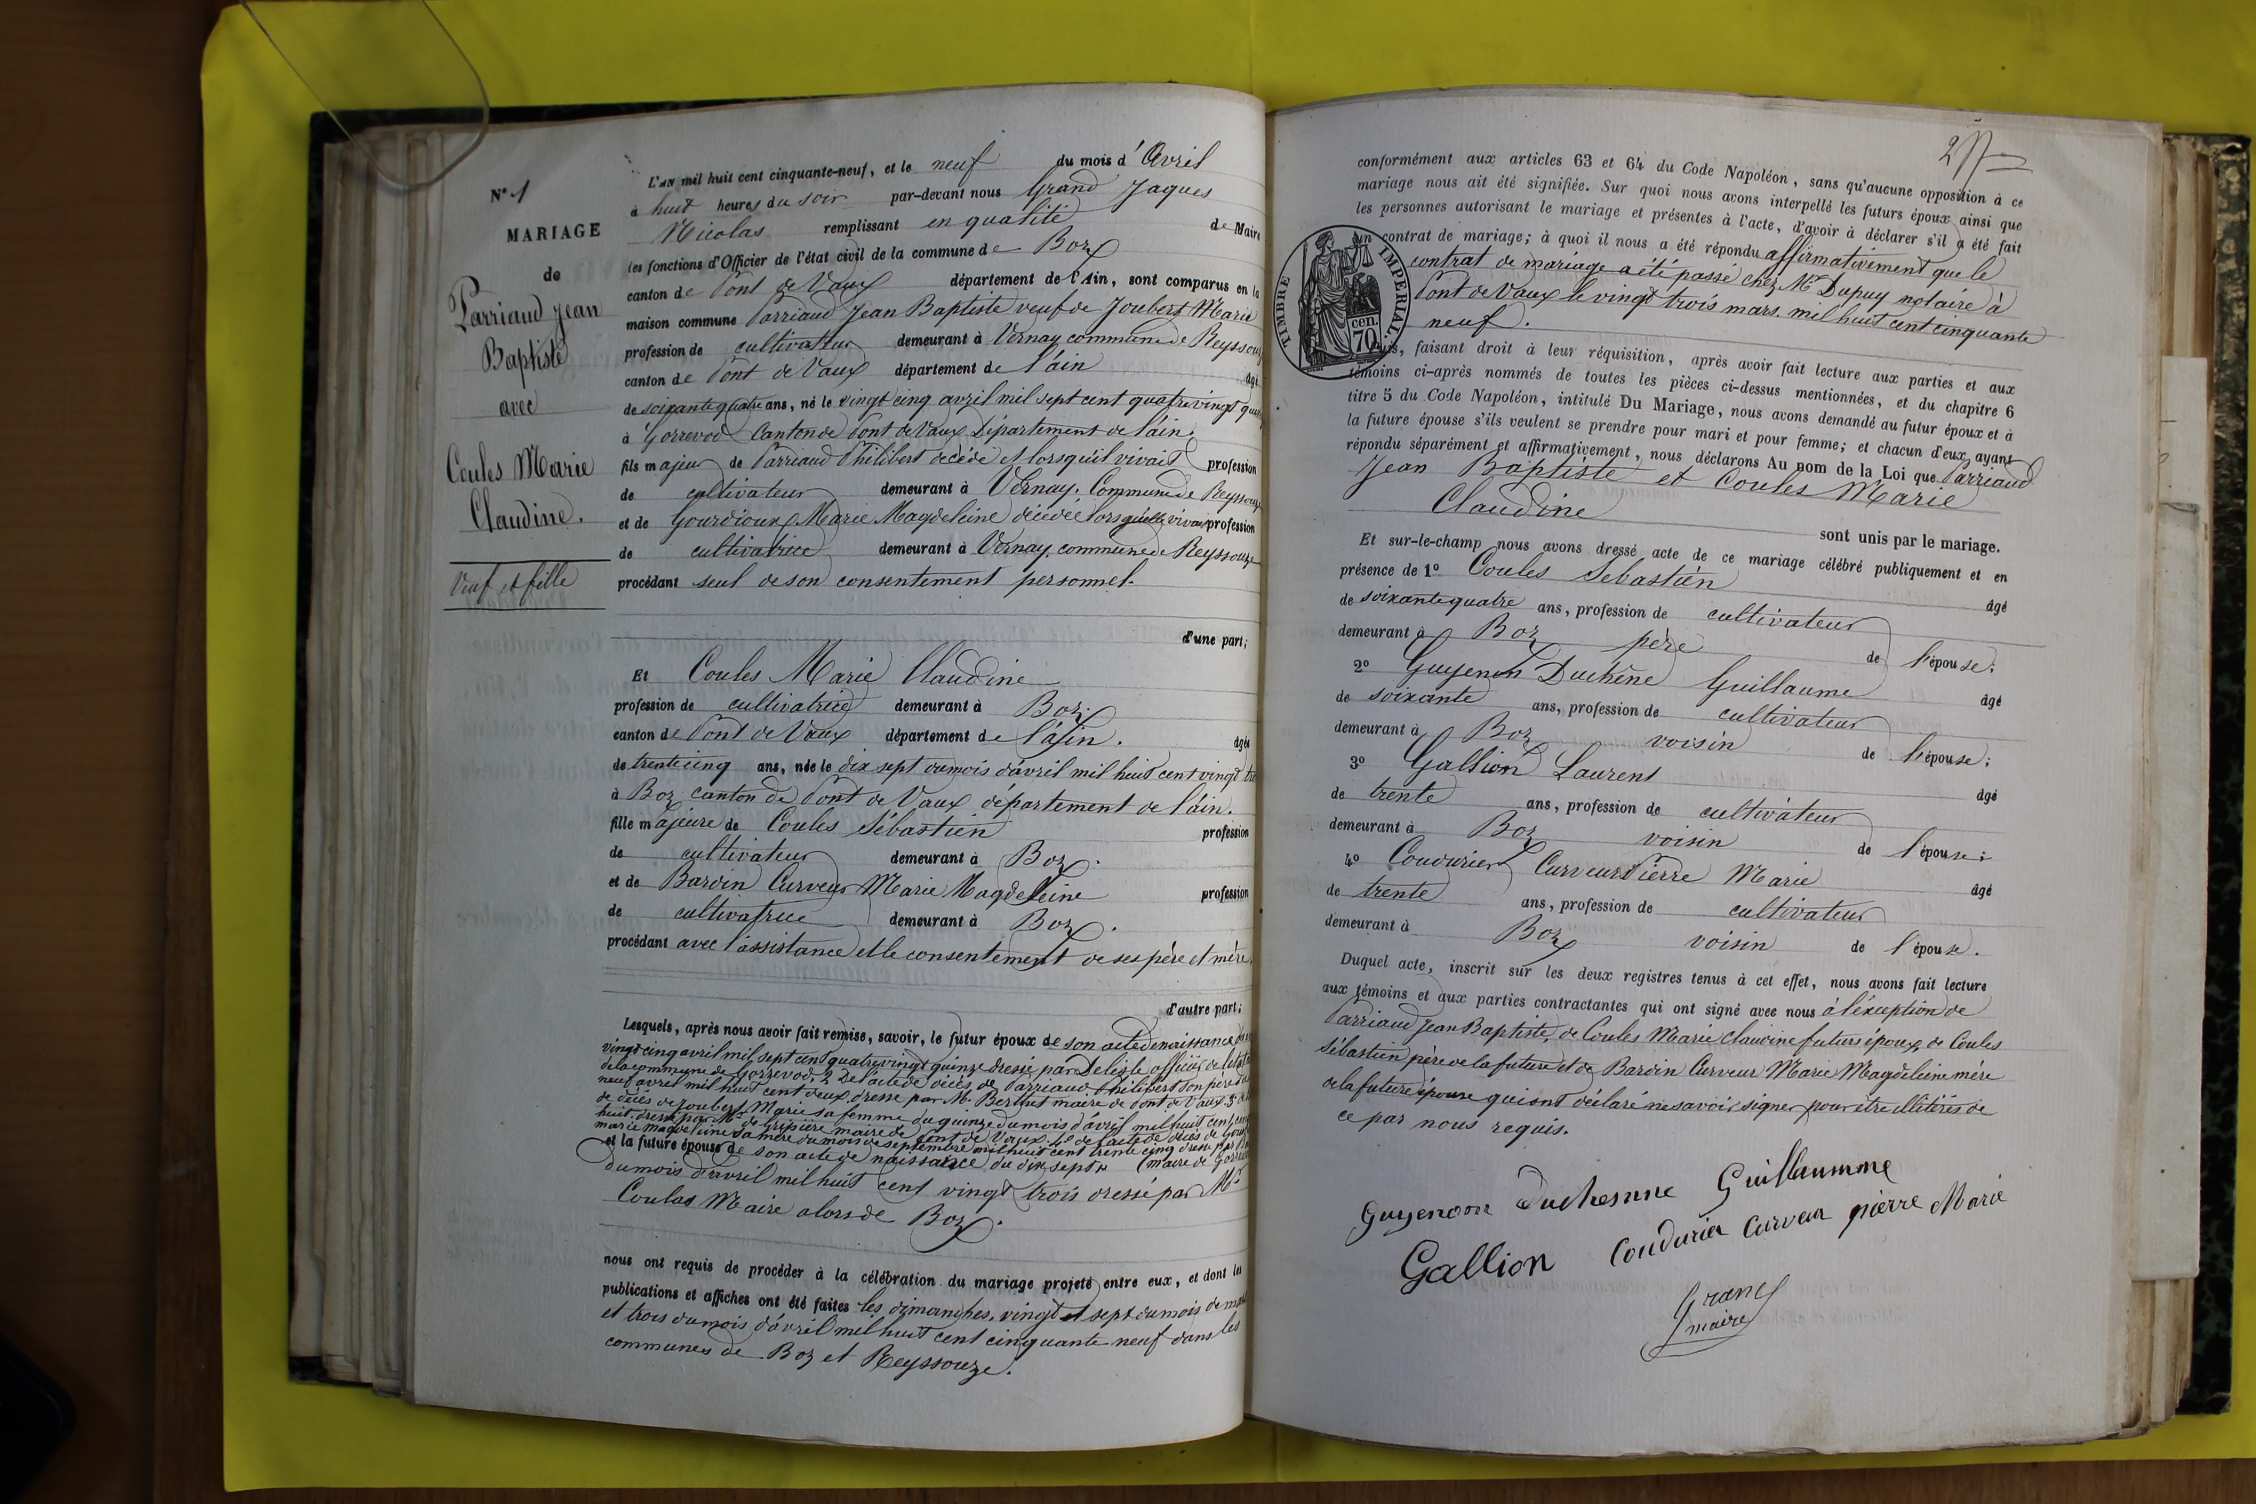 N° 1
MARIAGE
de
Parriaud Jean
Baptiste
avec
Coules Marie
Claudine.
Veuf et fille
L'AN mil huit cent cinquante-neuf, et le neuf du mois d'Avril
à huit heures du soir par-devant nous Grand Jaques
Nicolas remplissant en qualité de Maire
les fonctions d'Officier de l'état civil de la commune de Boz
canton de Pont de Vaux département de l'Ain, sont comparus en la
maison commune Parriaud Jean Baptiste veuf de Joubert Marie
profession de cultivateur demeurant à Vernay commune de Reyssouze
canton de Pont de Vaux département de l'ain âgé
de soixante quatre ans, né le vingt cinq avril mil sept cent quatre vingt
à Gorrevod Canton de Pont de Vaux Département de l'ain.
fils majeur de Parriaud Philibert décédé et lorsqu'il vivait profession
de cultivateur demeurant à Vernay. Commune de Reyssouze
et de Gourdioux Marie Magdeleine décédée lorsqu'elle vivait profession
de cultivatrice demeurant à Vernay. commune de Reyssouze
procédant seul de son consentement personnel.
d'une part;
Et Coules Marie Claudine
profession de cultivatrice demeurant à Boz.
canton de Pont de Vaux département de l'ain. âgée
de trente cinq ans, née le dix sept du mois d'avril mil huit cent vingt
à Boz canton de Pont de Vaux département de l'ain.
fille majeure de Coules Sébastien profession
de cultivateur demeurant à Boz.
et de Bardin Curveur Marie Magdeleine profession
de cultivatrice demeurant à Boz.
procédant avec l'assistance et le consentement de ses père et mère.
d'autre part;
Lesquels, après nous avoir fait remise, savoir, le futur époux de son acte de naissance
vingt cinq avril mil sept cent quatre vingt quinze dressé par Delisle officier de
de la commune de Gorrevod, 2 De l'acte de décès de Parriaud Philibert son père
neuf avril mil huit cent deux dressé par Mr Berthet maire de Pont de Vaux 3°
de décès de Joubert Marie sa femme du quinze du mois d'avril mil huit cent
huit dressé par Mr de Gripière maire de Pont de Vaux. 4° de l'acte de décès de
marie magdeleine sa mère du mois de septembre mil huit cent trente cinq dressé par
et la future épouse de son acte de naissance du dix sept (maire de
du mois d'avril mil huit cent vingt trois dressé par Mr
Coulas Maire alors de Boz.
nous ont requis de procéder à la célébration du mariage projeté entre eux, et dont les
publications et affiches ont été faites les dimanches, vingt et sept du mois de
et trois du mois d'avril mil huit cent cinquante neuf dans les
communes de Boz et Reyssouze.
conformément aux articles 63 et 64 du Code Napoléon, sans qu'aucune opposition à ce
mariage nous ait été signifiée. Sur quoi nous avons interpellé les futurs époux ainsi que
les personnes autorisant le mariage et présentes à l'acte, d'avoir à déclarer s'il a été fait
un contrat de mariage; à quoi il nous a été répondu affirmativement que le
contrat de mariage a été passé chez Mr Dupuy notaire à
Pont de Vaux le vingt trois mars. mil huit cent cinquante
neuf.
TIMBRE IMPERIAL
70 cen.
faisant droit à leur réquisition, après avoir fait lecture aux parties et aux
témoins ci-après nommés de toutes les pièces ci-dessus mentionnées, et du chapitre 6
titre 5 du Code Napoléon, intitulé Du Mariage, nous avons demandé au futur époux et à
la future épouse s'ils veulent se prendre pour mari et pour femme; et chacun d'eux ayant
répondu séparément et affirmativement, nous déclarons Au nom de la Loi que Parriaud
Jean Baptiste et Coules Marie
Claudine
sont unis par le mariage.
Et sur-le-champ nous avons dressé acte de ce mariage célébré publiquement et en
présence de 1° Coules Sebastien âgé
de soixante quatre ans, profession de cultivateur
demeurant à Boz père de l'épouse;
2° Guyenon Duchêne Guillaume âgé
de soixante ans, profession de cultivateur
demeurant à Boz voisin de l'épouse;
3° Gallion Laurent âgé
de trente ans, profession de cultivateur
demeurant à Boz voisin de l'épouse;
4° Coudurier Curveur Pierre Marie âgé
de trente ans, profession de cultivateur
demeurant à Boz voisin de l'épouse.
Duquel acte, inscrit sur les deux registres tenus à cet effet, nous avons fait lecture
aux témoins et aux parties contractantes qui ont signé avec nous à l'éxception de
Parriaud Jean Baptiste, de Coules Marie Claudine futurs époux, de Coules
Sébastien père de la future et de Bardin Curveur Marie Magdeleine mère
de la future épouse qui ont déclaré ne savoir signer pour être illitérés de
ce par nous requis.
Guyenon Duchesnne Guillaumme
Gallion Coudurier Curveur pierre Marie
Grand
maire